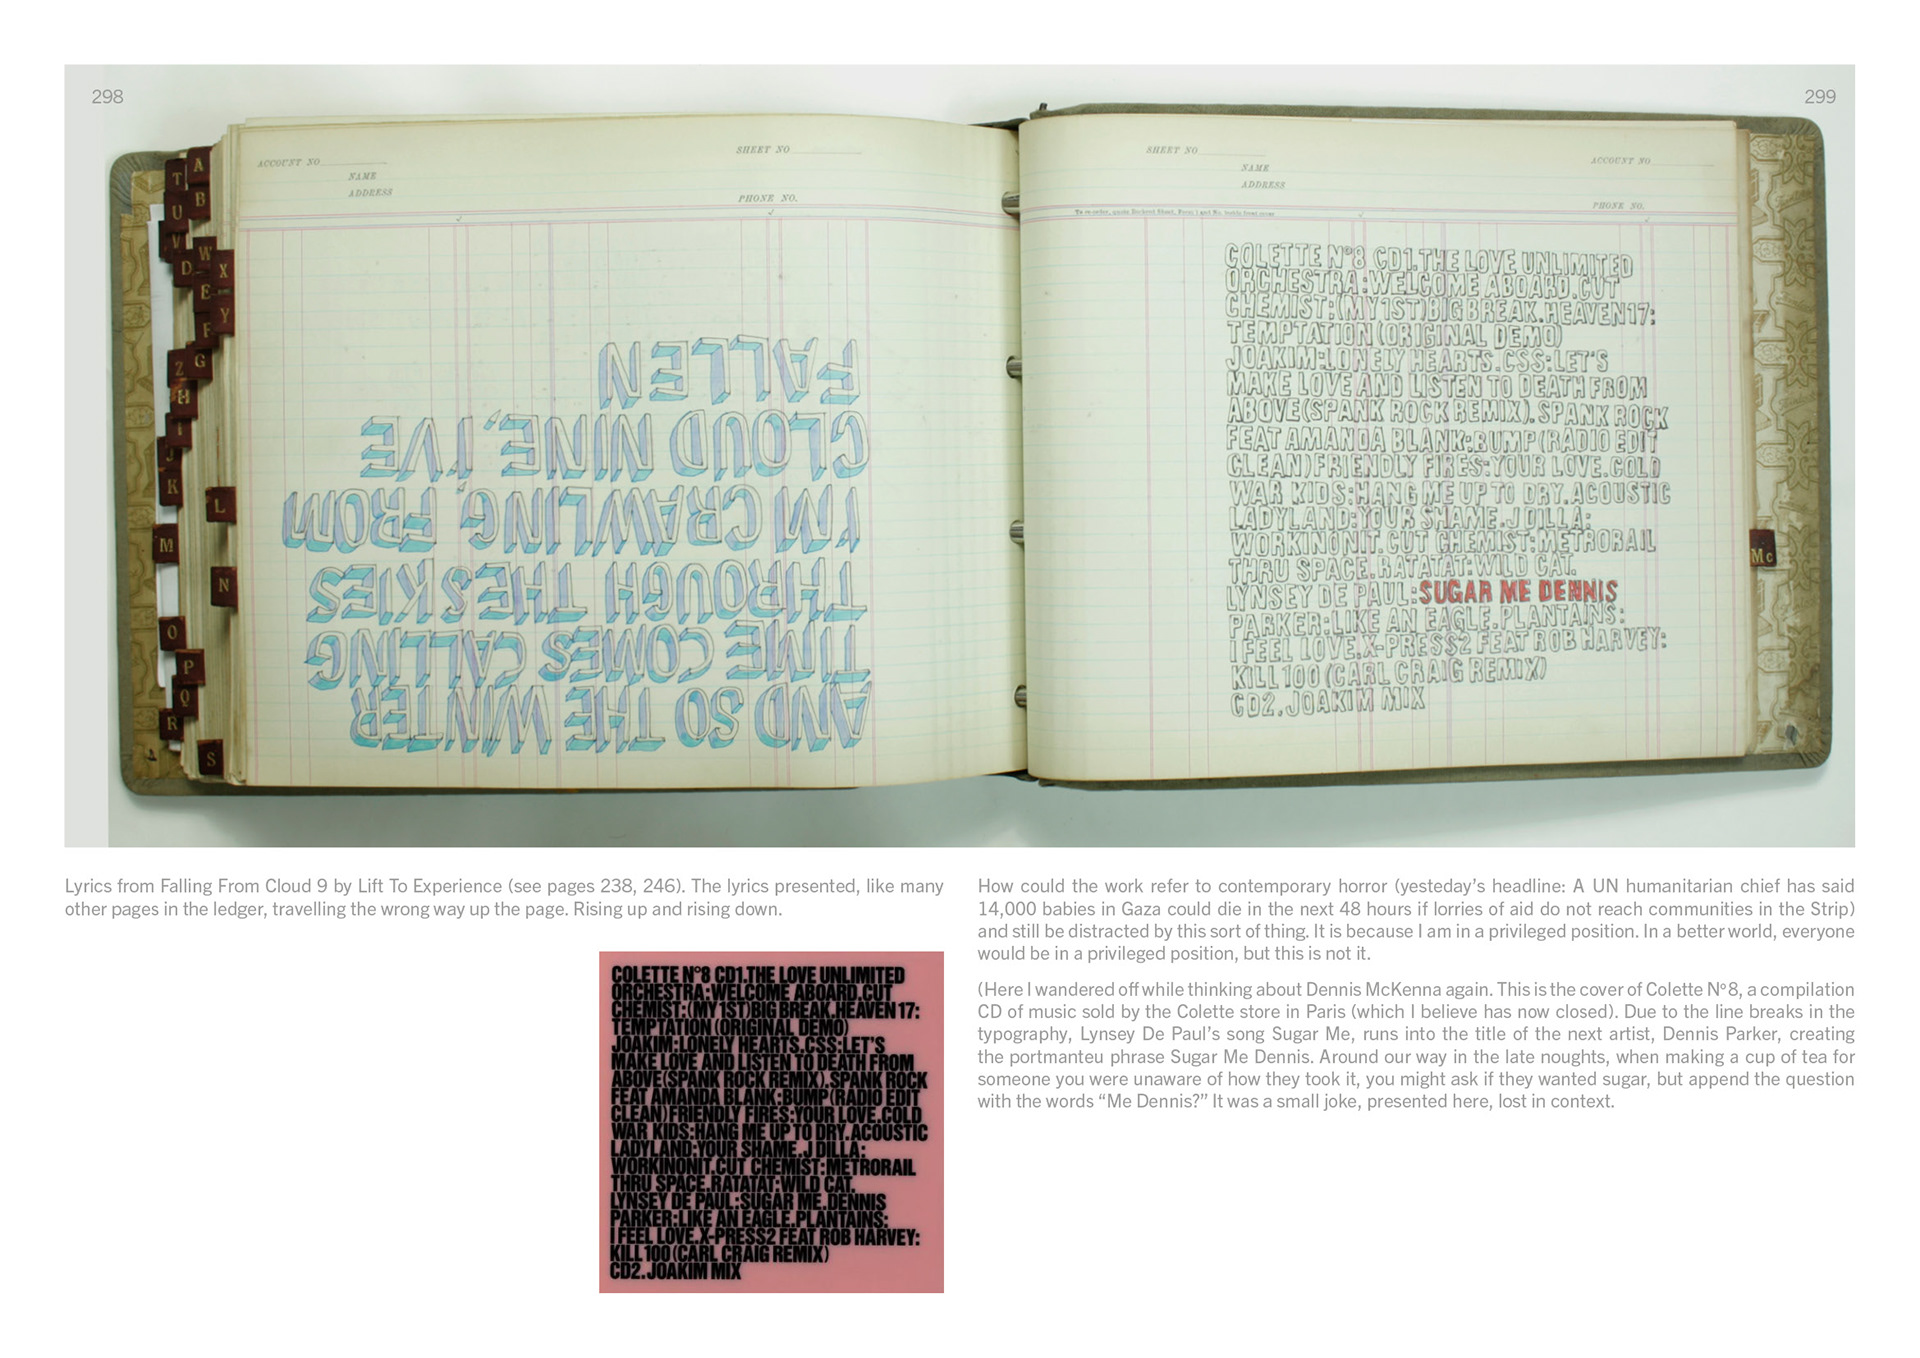 298
299
A
T
B
U
V
W
D
X
E
Y
F
G
Z
H
I
J
K
L
M
N
O
P
Q
R
S
ACCOUNT NO
SHEET NO
NAME
ADDRESS
PHONE NO.
AND SO THE WINTER
TIME COMES CALLING
THROUGH THE SKIES
I'M CRAWLING, FROM
CLOUD NINE, I'VE
FALLEN
SHEET NO
ACCOUNT NO
NAME
ADDRESS
PHONE NO.
COLETTE Nº8 CD1.THE LOVE UNLIMITED
ORCHESTRA:WELCOME ABOARD.CUT
CHEMIST:(MY1ST)BIG BREAK.HEAVEN17:
TEMPTATION (ORIGINAL DEMO)
JOAKIM:LONELY HEARTS.CSS:LET'S
MAKE LOVE AND LISTEN TO DEATH FROM
ABOVE(SPANK ROCK REMIX). SPANK ROCK
FEAT AMANDA BLANK:BUMP(RADIO EDIT
CLEAN)FRIENDLY FIRES:YOUR LOVE.COLD
WAR KIDS:HANG ME UP TO DRY.ACOUSTIC
LADYLAND:YOUR SHAME.J DILLA:
WORKINONIT.CUT CHEMIST:METRORAIL
THRU SPACE.RATATAT:WILD CAT.
LYNSEY DE PAUL:SUGAR ME DENNIS
PARKER:LIKE AN EAGLE.PLANTAINS:
I FEEL LOVE.X-PRESS2 FEAT ROB HARVEY:
KILL 100 (CARL CRAIG REMIX)
CD2.JOAKIM MIX
Mc
Lyrics from Falling From Cloud 9 by Lift To Experience (see pages 238, 246). The lyrics presented, like many
other pages in the ledger, travelling the wrong way up the page. Rising up and rising down.
COLETTE Nº8 CD1.THE LOVE UNLIMITED
ORCHESTRA:WELCOME ABOARD.CUT
CHEMIST:(MY1ST)BIG BREAK.HEAVEN 17:
TEMPTATION (ORIGINAL DEMO)
JOAKIM:LONELY HEARTS.CSS:LET'S
MAKE LOVE AND LISTEN TO DEATH FROM
ABOVE(SPANK ROCK REMIX).SPANK ROCK
FEAT AMANDA BLANK:BUMP(RADIO EDIT
CLEAN)FRIENDLY FIRES:YOUR LOVE.COLD
WAR KIDS:HANG ME UP TO DRY.ACOUSTIC
LADYLAND:YOUR SHAME.J DILLA:
WORKINONIT.CUT CHEMIST:METRORAIL
THRU SPACE.RATATAT:WILD CAT.
LYNSEY DE PAUL:SUGAR ME.DENNIS
PARKER:LIKE AN EAGLE.PLANTAINS:
I FEEL LOVE.X-PRESS2 FEAT ROB HARVEY:
KILL 100 (CARL CRAIG REMIX)
CD2.JOAKIM MIX
How could the work refer to contemporary horror (yesteday's headline: A UN humanitarian chief has said
14,000 babies in Gaza could die in the next 48 hours if lorries of aid do not reach communities in the Strip)
and still be distracted by this sort of thing. It is because I am in a privileged position. In a better world, everyone
would be in a privileged position, but this is not it.
(Here I wandered off while thinking about Dennis McKenna again. This is the cover of Colette Nº8, a compilation
CD of music sold by the Colette store in Paris (which I believe has now closed). Due to the line breaks in the
typography, Lynsey De Paul's song Sugar Me, runs into the title of the next artist, Dennis Parker, creating
the portmanteu phrase Sugar Me Dennis. Around our way in the late noughts, when making a cup of tea for
someone you were unaware of how they took it, you might ask if they wanted sugar, but append the question
with the words “Me Dennis?” It was a small joke, presented here, lost in context.